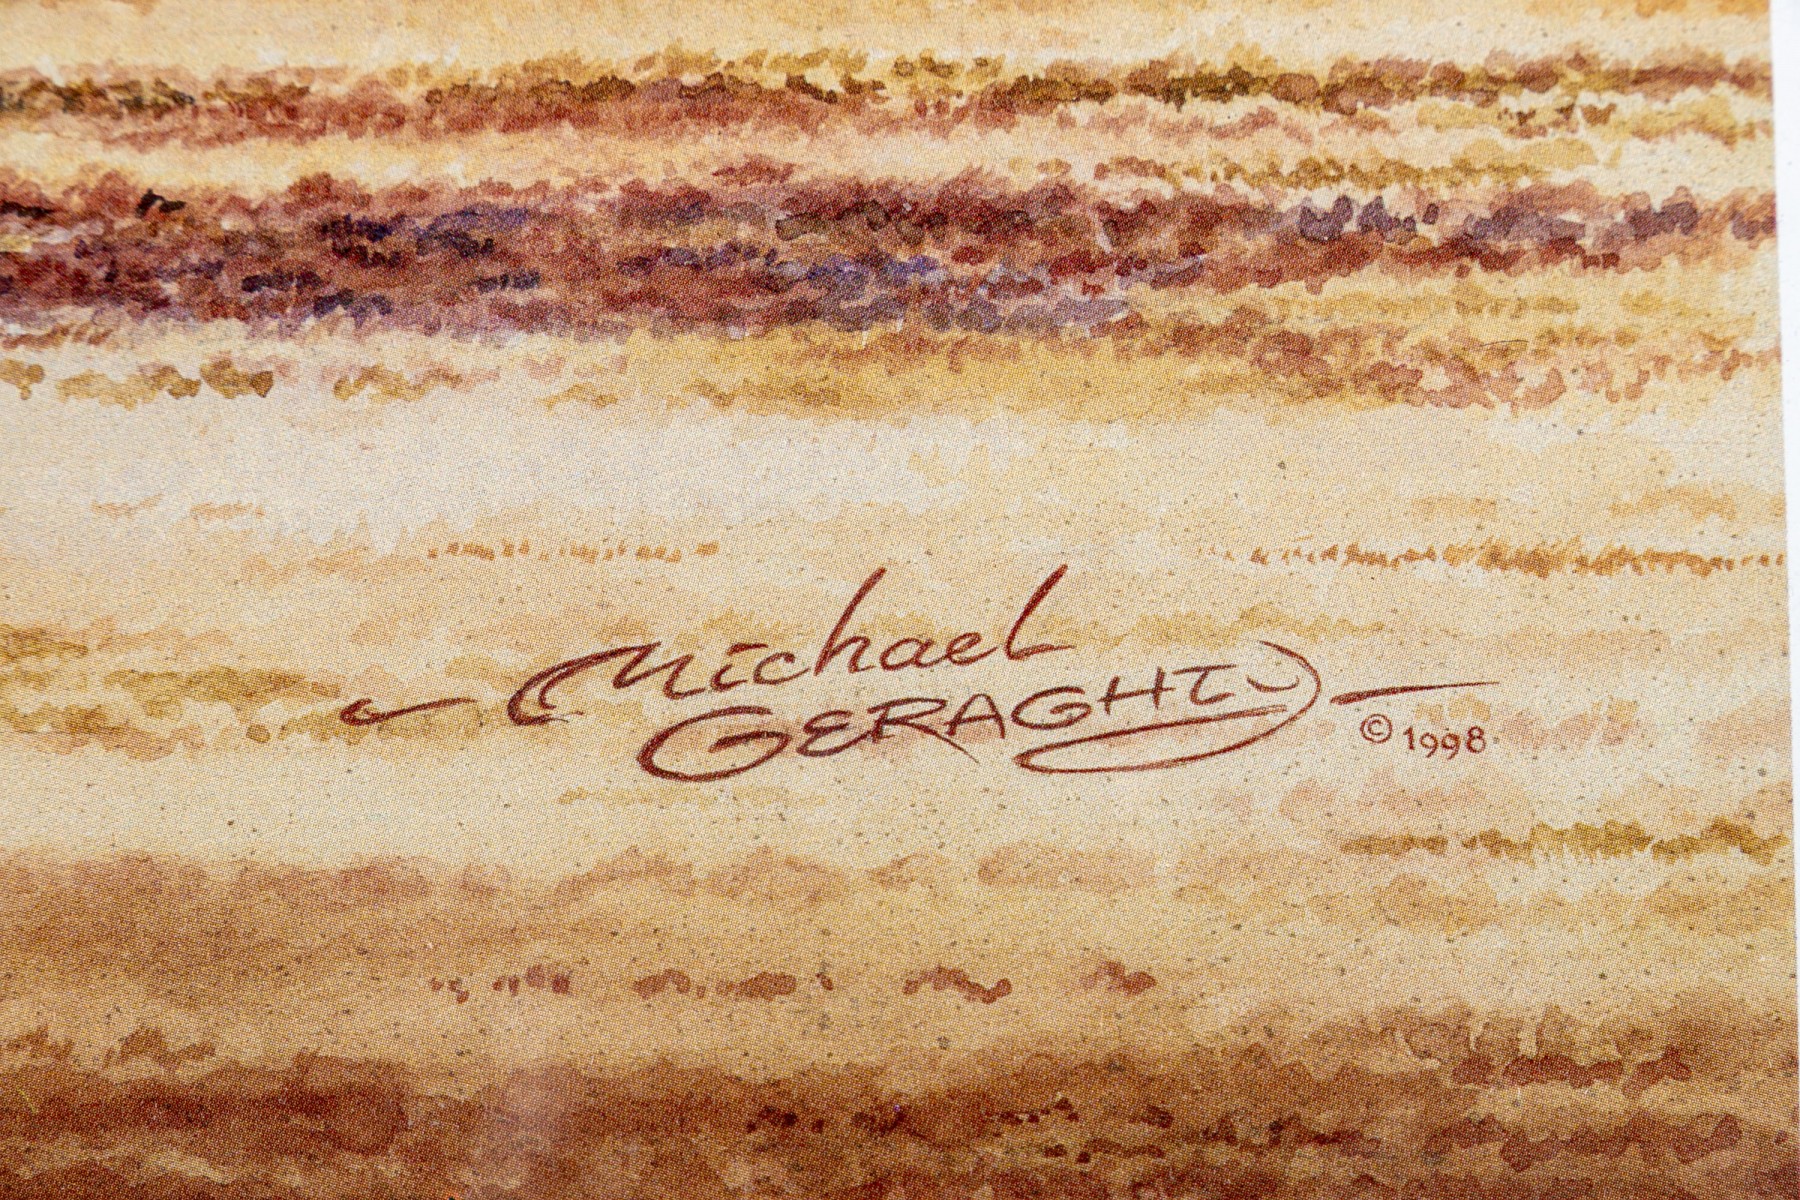 Michael
GERAGHTY
© 1998